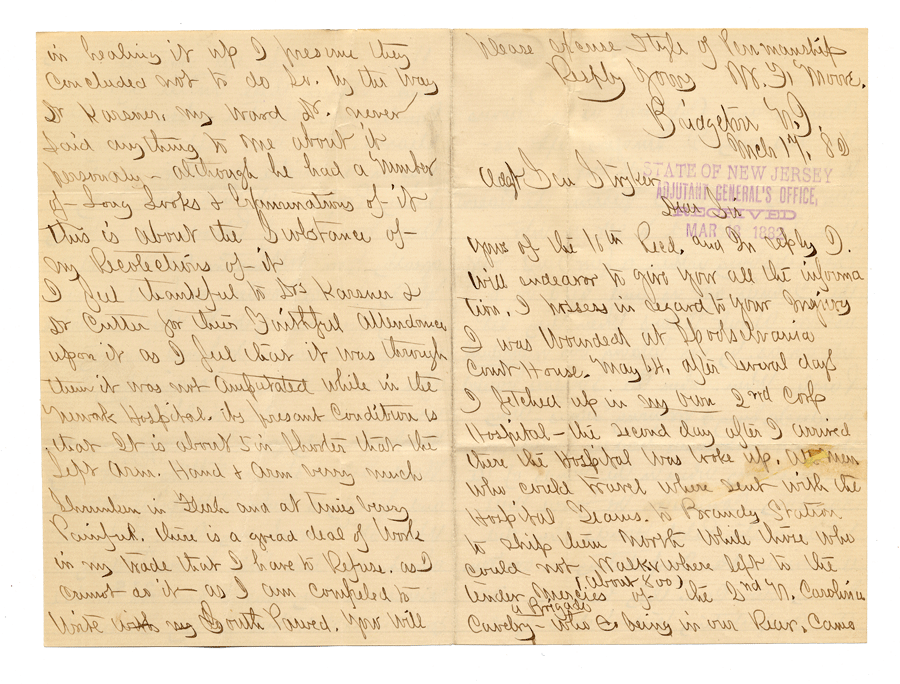 in healing it up I presume they
Concluded not to do So. By the Way
Dr Karsner, my Ward Dr. never
Said anything to me about it
personally – although he had a Number
of – Long Looks & Examinations of – it
this is about the Substance of –
my Recolections of – it
I feel thankful to Drs Karsner &
Dr Cutter for their Faithful Attendance
upon it as I feel that it was through
them it was not Amputated while in the
Newark Hospital. its present Condition is
that It is about 5 in Shorter that the
Left Arm. Hand & Arm verry much
Shrunken in Flesh and at times very
Painfull. there is a gread deal of Work
in my trade that I have to Refuse. as I
cannot do it – as I am compeled to
Write with my South Pawed. You Will
Please Excuse Style of Penmanship
Respy Yours W. F. Moore.
Bridgeton N.J.
Mch 17, 82
STATE OF NEW JERSEY
ADJUTANT GENERAL'S OFFICE,
RECEIVED
MAR 18 1882
Adgt Gen Stryker
Dear Sir
Yours of the 16th Recd. and In reply I.
Will endeavor to give you all the informa
tion. I posess in regard to your Inquiry
I was Wounded at Spodselvania
Court House. May 14. after Several days
I fetched up in my own 2nd Corp
Hospital – the second day after I arrived
there the Hospital Was broke up. all men
Who could travel where sent with the
Hospital Teams. to Brandy Station
to ship them North While those who
could not Walk, where left to the
(about 800)
tender Mercies of – the 2nd N. Carolina
a Brigade
Cavelry – Who being in our Rear, Came